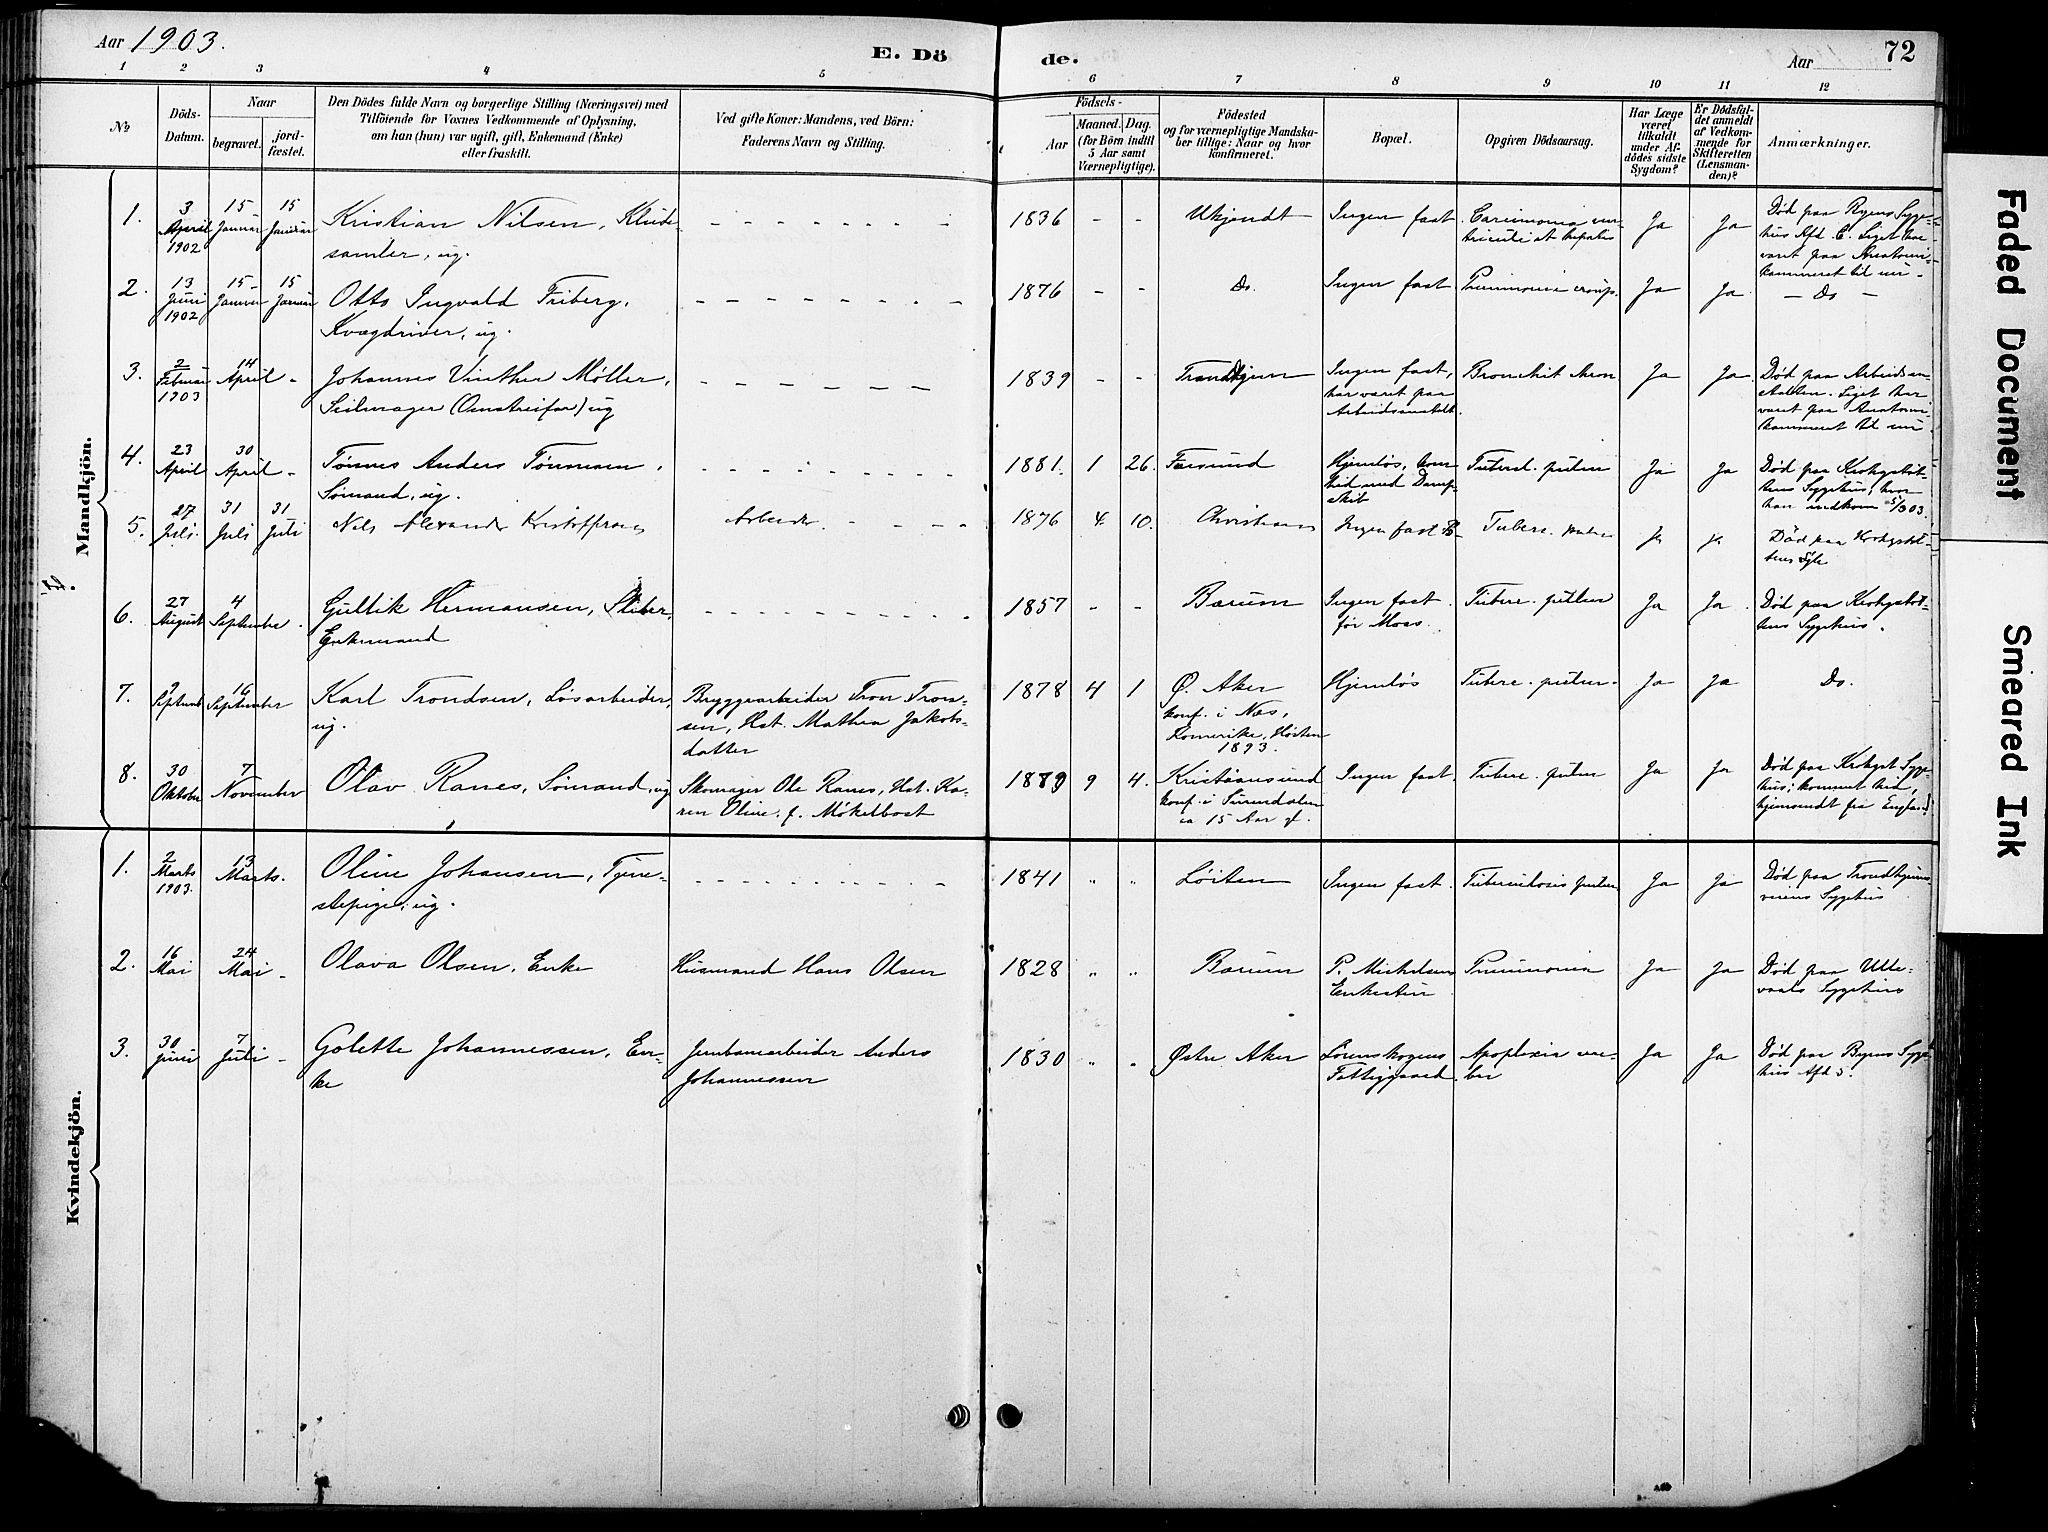 Aar 1903.
E. Dö
de.
Aar
72
1 2 3 4 5 6 7 8 9 10 11 12
No
Döds-
Datum.
Naar
begravet.
jord-
fæstet.
Den Dödes fulde Navn og borgerlige Stilling (Næringsvei) med
Tilföiende for Voxnes Vedkommende af Oplysning,
om han (hun) var ugift, gift, Enkemand (Enke)
eller fraskilt.
Ved gifte Koner: Mandens, ved Börn:
Faderens Navn og Stilling.
Födsels-
Aar
Maaned. Dag.
(for Börn indtil
5 Aar samt
Værnepligtige).
Födested
og for værnepligtige Mandska-
ber tillige: Naar og hvor
konfirmeret.
Bopæl.
Opgiven Dödsaarsag.
Har Læge
været
tilkaldt
under Af-
dödes sidste
Sygdom?
Er Dödsfal-
det anmeldt
af Vedkom-
mende for
Skifteretten
(Lensman-
den)?
Anmærkninger.
Mandkjön.
1.
3 April 1902
15 Januar
15 Januar
Kristian Nilsen, Klude-
samler, ug.
1836 - -
Ukjendt
Ingen fast
Ja
Ja
Død paa Byens Syge-
hus Afd. C. Liget har
været paa Anatomi-
kammeret til nu -
2.
13 Juni 1902
15 Januar
15 Januar
Otto Ingvald Friberg,
Kvægdriver, ug.
1876 - -
Do.
Ingen fast
Pneumonia croup.
Ja
Ja
- Do -
3.
2 Februar 1903
14 April -
Johannes Vinther Møller,
Seilmager (Omstreifer) ug
1839 - -
Trondhjem
Ingen fast,
har været paa
Arbeidsanstalt.
Bronchit kron
Ja
Ja
Død paa Arbeidsan-
stalten. Liget har
været paa Anatomi-
kammeret til nu
4.
23 April
30 April -
Tønnes Anders Tønnesen,
Sømand, ug.
1881. 1 26.
Farsund
Hjemløs, kom
hid med Damp-
skib
Tuberc. pulm
Ja
Ja
Død paa Krohgstøt-
tens Sygehus, hvor
han indkom 5/3 03.
5.
27 Juli.
31 Juli
31 Juli
Nils Alexander Kristoffersen
Arbeider.
1876 4. 10.
Christiania
Ingen fast B-
Tuberc. pulm
Ja
Ja
Død paa Krohgstøt-
tens Syk
6.
27 August
4 September.
Gullik Hermansen, Sliber,
Enkemand
1857 - -
Bærum
Ingen fast.
før Moss.
Tuberc. pulm
Ja
Ja
Død paa Krohgstøt-
tens Sygehus.
7.
9 Septemb
16 September
Karl Trondsen, Løsarbeider,
ug.
Bryggearbeider Tron Tron-
sen, Hst. Mathea Jakobs-
datter
1878 4 1
Ø. Aker
konf. i Næs,
Romerike, Høsten
1893.
Hjemløs
Tuberc. pulm.
Ja
Ja
Do.
8.
30 Oktober
7 November
Olav Ranes, Sømand, ug
Skomager Ole Ranes, Hst. Ka-
ren Oline. f. Møkelbost
1879 9 4.
Kristiansund
konf. i Surendalen
ca 15 Aar gl.
Ingen fast.
Tuberc. pulm
Ja
Ja
Død paa Krohgst. Syge-
hus; kommet hid,
hjemsendt fra England
Kvindekjön.
1.
2 Marts 1903.
13 Marts.
Oline Johansen, Tjene-
stepige, ug.
1841 " "
Løiten
Ingen fast.
Tuberculosis pulm
Ja
Ja
Død paa Trondhjems-
veiens Sygehus
2.
16 Mai
24 Mai -
Olava Olsen, Enke
Husmand Hans Olsen
1828 " "
Bærum
P. Michelsens
Enkestin
Pneumonia
Ja
Ja
Død paa Ulle-
vaals Sygehus
3.
30 Juni
7 Juli -
Golette Johannessen, En-
ke
Jernbanearbeider Anders
Johannessen
1830 " "
Østre Aker
Lørenskogens
Fattiggaard
Apoplexia cere-
bri
Ja
Ja
Død paa Byens Syge-
hus Afd 5.
Faded Document
Smeared Ink